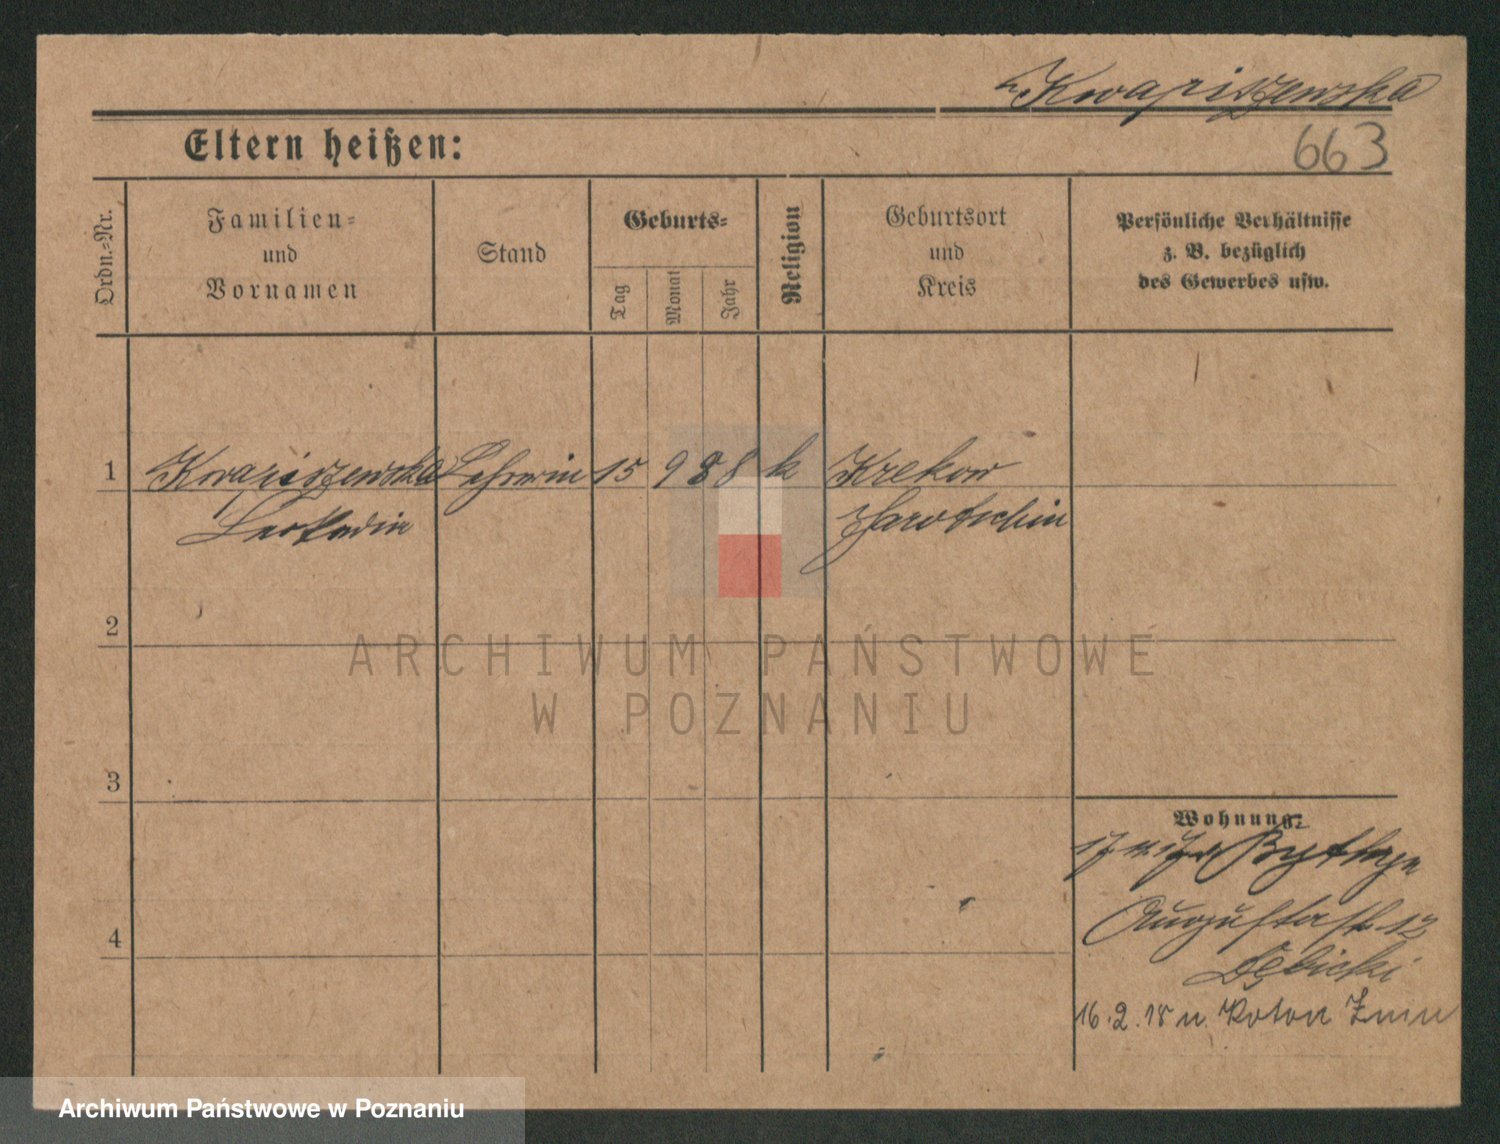 Kwapiszewska
663
Eltern heißen:
Ordn.-Nr.
Familien- und Vornamen
Stand
Geburts-
Tag
Monat
Jahr
Religion
Geburtsort und Kreis
Persönliche Verhältnisse
z. B. bezüglich
des Gewerbes usw.
1 Kwapiszewska Lehrerin 15 9 88 k
Leokadia Jarotschin
2
3
4
Wohnung:
Augustastr. 12
Dębicki
16.2.18 n.
ARCHIWUM PAŃSTWOWE
W POZNANIU
Archiwum Państwowe w Poznaniu